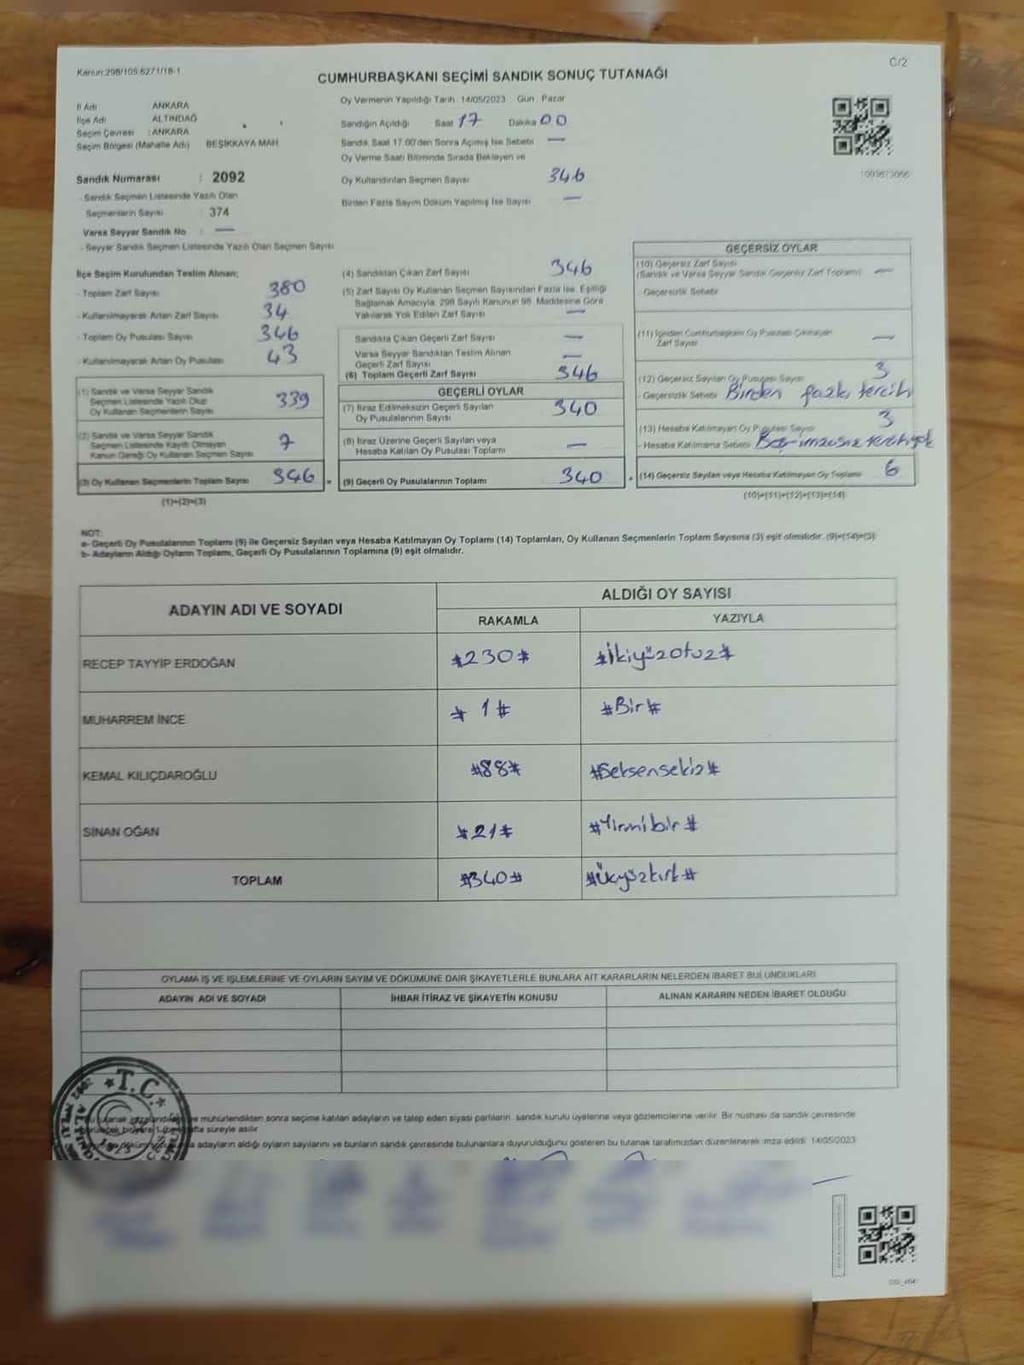 Kanun:298/105 6271/18-1
C/2
CUMHURBAŞKANI SEÇİMİ SANDIK SONUÇ TUTANAĞI
İl Adı ANKARA
İlçe Adı ALTINDAĞ
Seçim Çevresi : ANKARA
Seçim Bölgesi (Mahalle Adı) BEŞİKKAYA MAH
Sandık Numarası : 2092
- Sandık Seçmen Listesinde Yazılı Olan
Seçmenlerin Sayısı : 374
Varsa Seyyar Sandık No : —
- Seyyar Sandık Seçmen Listesinde Yazılı Olan Seçmen Sayısı
Oy Vermenin Yapıldığı Tarih : 14/05/2023 Gün : Pazar
Sandığın Açıldığı Saat 17 Dakika 00
Sandık Saat 17:00'den Sonra Açılmış İse Sebebi —
Oy Verme Saati Bitiminde Sırada Bekleyen ve
Oy Kullandırılan Seçmen Sayısı 346
Birden Fazla Sayım Döküm Yapılmış İse Sayısı —
İlçe Seçim Kurulundan Teslim Alınan;
- Toplam Zarf Sayısı 380
- Kullanılmayarak Artan Zarf Sayısı 34
- Toplam Oy Pusulası Sayısı 346
- Kullanılmayarak Artan Oy Pusulası 43
(1) Sandık ve Varsa Seyyar Sandık
Seçmen Listesinde Yazılı Olup
Oy Kullanan Seçmenlerin Sayısı 339
(2) Sandık ve Varsa Seyyar Sandık
Seçmen Listesinde Kayıtlı Olmayan
Kanun Gereği Oy Kullanan Seçmen Sayısı 7
(3) Oy Kullanan Seçmenlerin Toplam Sayısı 346
(1)+(2)=(3)
(4) Sandıktan Çıkan Zarf Sayısı 346
(5) Zarf Sayısı Oy Kullanan Seçmen Sayısından Fazla İse, Eşitliği
Sağlamak Amacıyla, 298 Sayılı Kanunun 98. Maddesine Göre
Yakılarak Yok Edilen Zarf Sayısı —
Sandıkta Çıkan Geçerli Zarf Sayısı —
Varsa Seyyar Sandıktan Teslim Alınan
Geçerli Zarf Sayısı —
(6) Toplam Geçerli Zarf Sayısı 346
GEÇERLİ OYLAR
(7) İtiraz Edilmeksizin Geçerli Sayılan
Oy Pusulalarının Sayısı 340
(8) İtiraz Üzerine Geçerli Sayılan veya
Hesaba Katılan Oy Pusulası Toplamı —
(9) Geçerli Oy Pusulalarının Toplamı 340
GEÇERSİZ OYLAR
(10) Geçersiz Zarf Sayısı
(Sandık ve Varsa Seyyar Sandık Geçersiz Zarf Toplamı) —
- Geçersizlik Sebebi
(11) İçinden Cumhurbaşkanı Oy Pusulası Çıkmayan
Zarf Sayısı —
(12) Geçersiz Sayılan Oy Pusulası Sayısı 3
- Geçersizlik Sebebi Birden fazla tercih
(13) Hesaba Katılmayan Oy Pusulası Sayısı 3
- Hesaba Katılmama Sebebi
(14) Geçersiz Sayılan veya Hesaba Katılmayan Oy Toplamı 6
(10)+(11)+(12)+(13)=(14)
NOT:
a- Geçerli Oy Pusulalarının Toplamı (9) ile Geçersiz Sayılan veya Hesaba Katılmayan Oy Toplamı (14) Toplamları, Oy Kullanan Seçmenlerin Toplam Sayısına (3) eşit olmalıdır. (9)+(14)=(3)
b- Adayların Aldığı Oyların Toplamı, Geçerli Oy Pusulalarının Toplamına (9) eşit olmalıdır.
ADAYIN ADI VE SOYADI
ALDIĞI OY SAYISI
RAKAMLA YAZIYLA
RECEP TAYYİP ERDOĞAN #230# #İkiyüzotuz#
MUHARREM İNCE # 1# #Bir#
KEMAL KILIÇDAROĞLU #88# #Seksensekiz#
SİNAN OĞAN #21# #Yirmibir#
TOPLAM #340# #Üçyüzkırk#
OYLAMA İŞ VE İŞLEMLERİNE VE OYLARIN SAYIM VE DÖKÜMÜNE DAİR ŞİKAYETLERLE BUNLARA AİT KARARLARIN NELERDEN İBARET BULUNDUKLARI
ADAYIN ADI VE SOYADI İHBAR İTİRAZ VE ŞİKAYETİN KONUSU ALINAN KARARIN NEDEN İBARET OLDUĞU
T.C.
mühürlendikten sonra seçime katılan adayların ve talep eden siyasi partilerin, sandık kurulu üyelerine veya gözlemcilerine verilir. Bir nüshası da sandık çevresinde
süreyle asılır
adayların aldığı oyların sayılarını ve bunların sandık çevresinde bulunanlara duyurulduğunu gösteren bu tutanak tarafımızdan düzenlenerek imza edildi. 14/05/2023